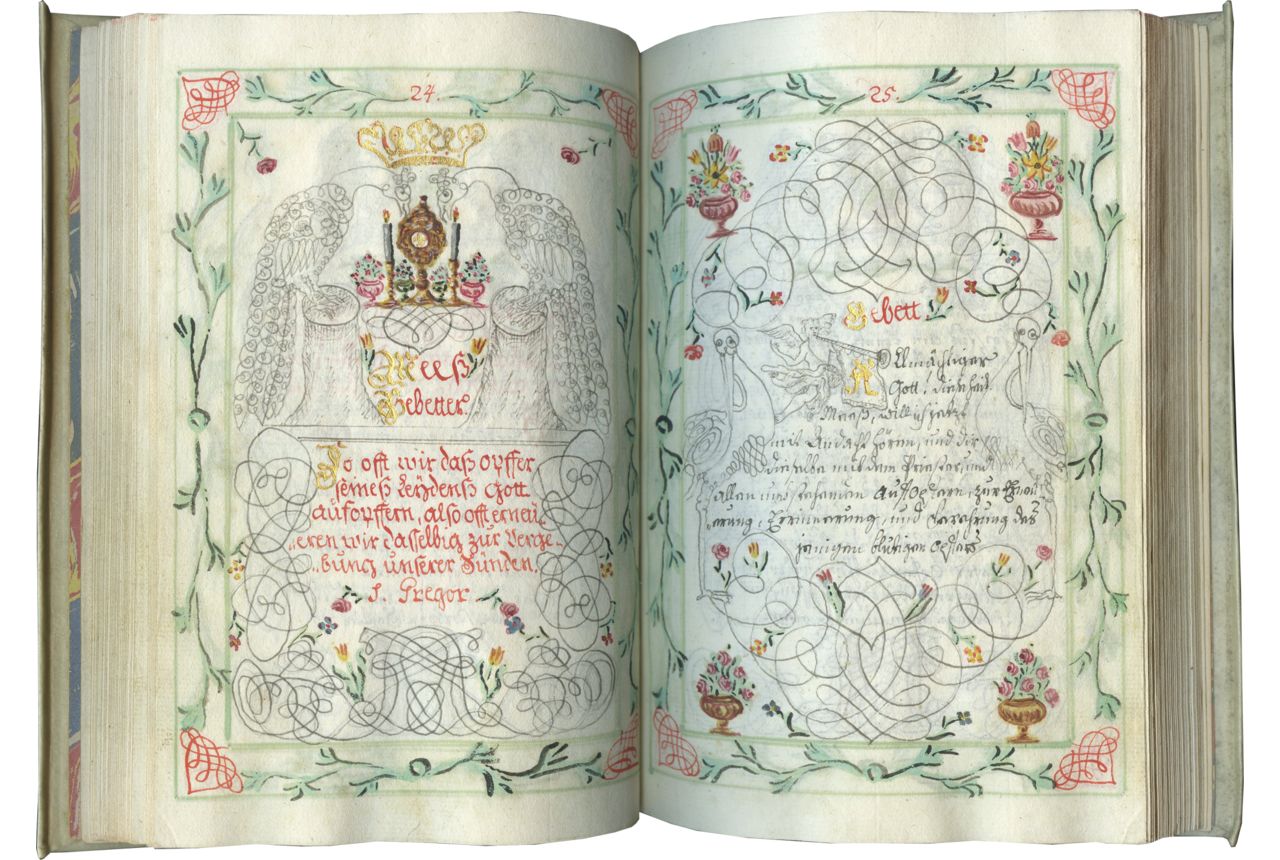 24.
Meeß
Gebetter.
So offt wir daß opffer
seineß Leÿdenß Gott
aufopffern, also offt erneu„
„eren wir dasselbig zur Verge„
„bung unserer Sünden.
S. Gregor
25.
Gebett.
Allmächtiger
Gott, diese heil.
Meeß, will ich jetzt
mit Andacht hören, und dir
dieselbe mit dem Priester, und
allen und aufopfern, zur Erneu„
„erung, Erinnerung, und des
jenigen blutigen